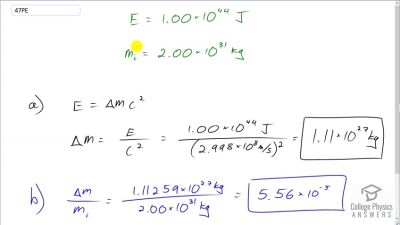 47PE
E = 1.00×10⁴⁴ J
mᵢ = 2.00×10³¹ kg
a) E = Δm c²
Δm = E / c² = 1.00×10⁴⁴ J / (2.998×10⁸ m/s)² = 1.11×10²⁷ kg
b) Δm / mᵢ = 1.11259×10²⁷ kg / 2.00×10³¹ kg = 5.56×10⁻⁵
College Physics
ANSWERS